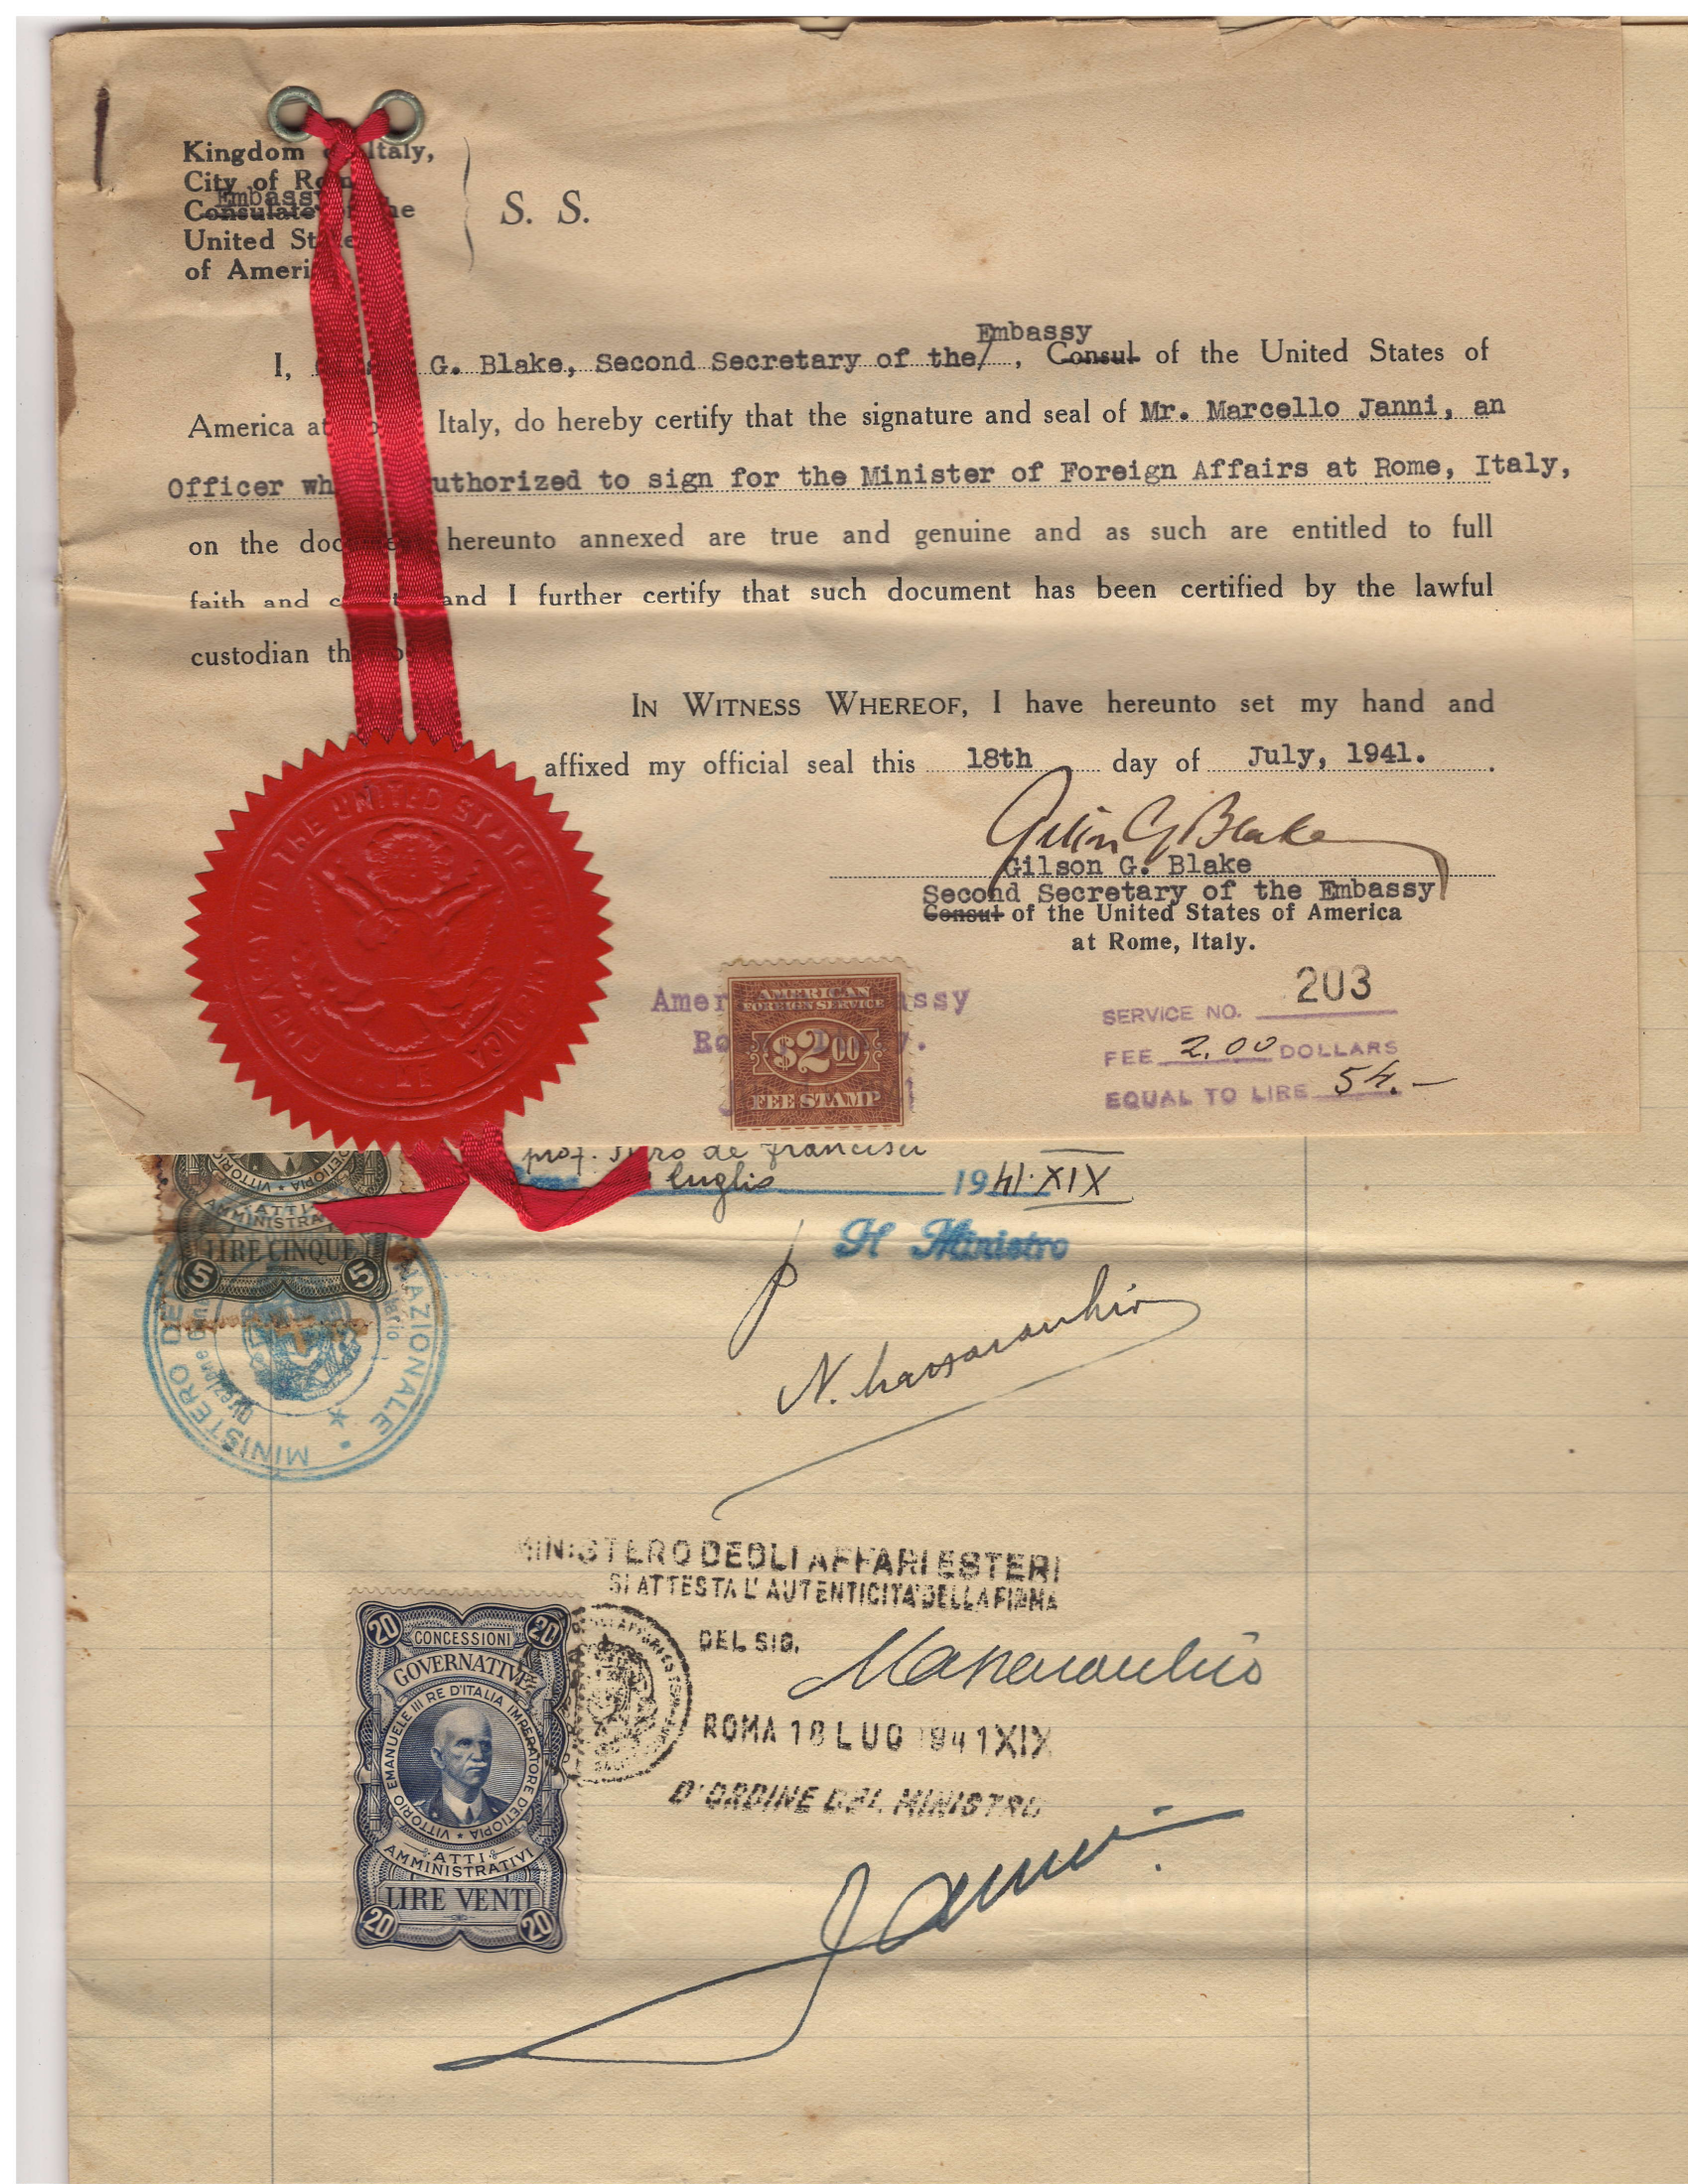 Kingdom Italy,
City of
Embassy
Consulate
United
of
S. S.
Embassy
I, G. Blake, Second Secretary of the/ , Consul of the United States of
America at Italy, do hereby certify that the signature and seal of Mr. Marcello Janni, an
Officer authorized to sign for the Minister of Foreign Affairs at Rome, Italy,
on the hereunto annexed are true and genuine and as such are entitled to full
faith and and I further certify that such document has been certified by the lawful
custodian
IN WITNESS WHEREOF, I have hereunto set my hand and
affixed my official seal this 18th day of July, 1941.
Gilson G Blake
Gilson G. Blake
Second Secretary of the Embassy
Consul of the United States of America
at Rome, Italy.
EMBASSY OF THE UNITED STATES OF AMERICA
AMERICAN
FOREIGN SERVICE
$2.00
FEE STAMP
203
SERVICE NO.
FEE 2.00 DOLLARS
EQUAL TO LIRE 54.-
prof. de francisci
luglio 1941.XIX
Il Ministro
VITTORIO D'ETIOPIA
ATTI
LIRE CINQUE
5 5
MINISTERO NAZIONALE
Direzione
MINISTERO DEGLI AFFARI ESTERI
SI ATTESTA L'AUTENTICITA' DELLA FIRMA
DEL SIG.
ROMA 18 LUG 1941 XIX
D'ORDINE DEL MINISTRO
Janni
20 20
CONCESSIONI
GOVERNATIVE
VITTORIO EMANUELE III RE D'ITALIA IMPERATORE D'ETIOPIA
ATTI
AMMINISTRATIVI
LIRE VENTI
20 20